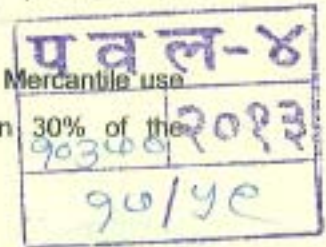 प व ल-४
Mercantile use
n 30% of the २०१३
१७/५९